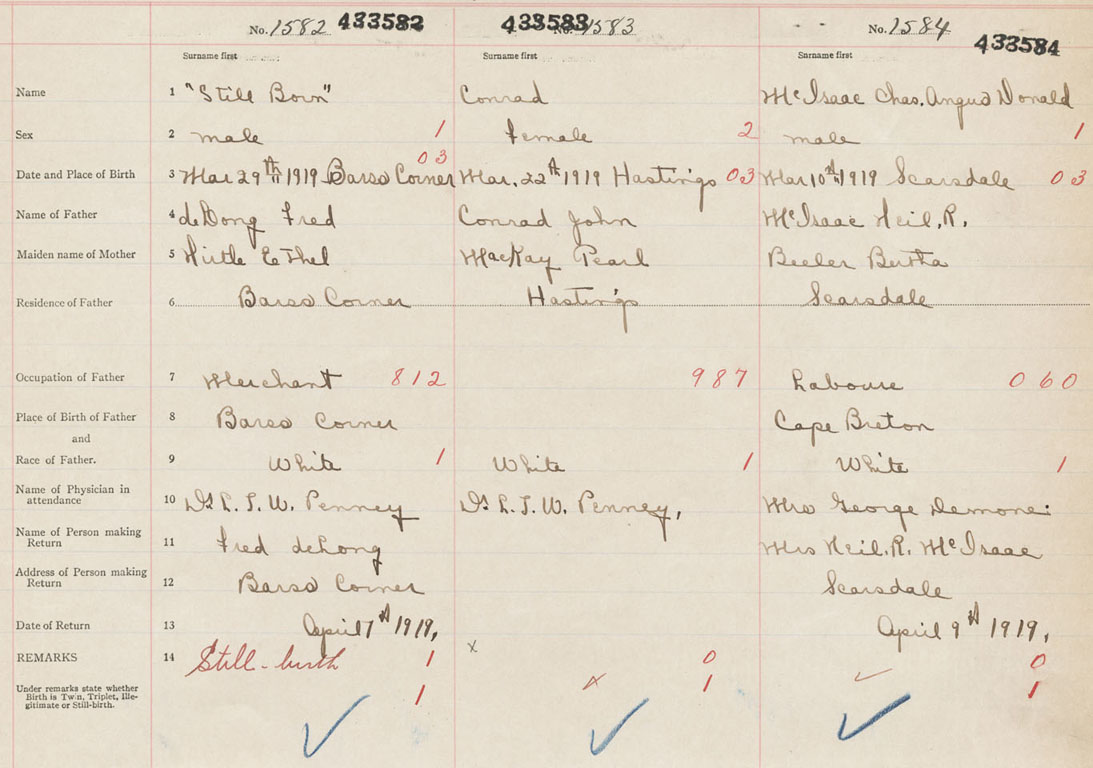 No. 1582 433582 433583 No. 1583 No. 1584 433584
Surname first Surname first Surname first
Name 1 "Still Born" Conrad McIsaac Chas. Angus Donald
Sex 2 male 1 Female 2 male 1
03
Date and Place of Birth 3 Mar 29th 1919 Barss Corner Mar. 22th 1919 Hastings 03 Mar 10th 1919 Scarsdale 03
Name of Father 4 deLong Fred Conrad John McIsaac Neil. R.
Maiden name of Mother 5 Hirtle Ethel MacKay Pearl Beeler Bertha
Residence of Father 6 Barss Corner Hastings Scarsdale
Occupation of Father 7 Merchant 812 987 Laboure 060
Place of Birth of Father 8 Barss Corner Cape Breton
and
Race of Father. 9 White 1 White 1 White 1
Name of Physician in
attendance 10 Dr L. T. W. Penney Dr L. T. W. Penney, Mrs George Demone
Name of Person making
Return 11 Fred deLong Mrs Neil. R. McIsaac
Address of Person making
Return 12 Barss Corner Scarsdale
Date of Return 13 April 7th 1919, April 9th 1919,
REMARKS 14 Still-birth 1 x 0 0
Under remarks state whether
Birth is Twin, Triplet, Ille-
gitimate or Still-birth. 1 1 1